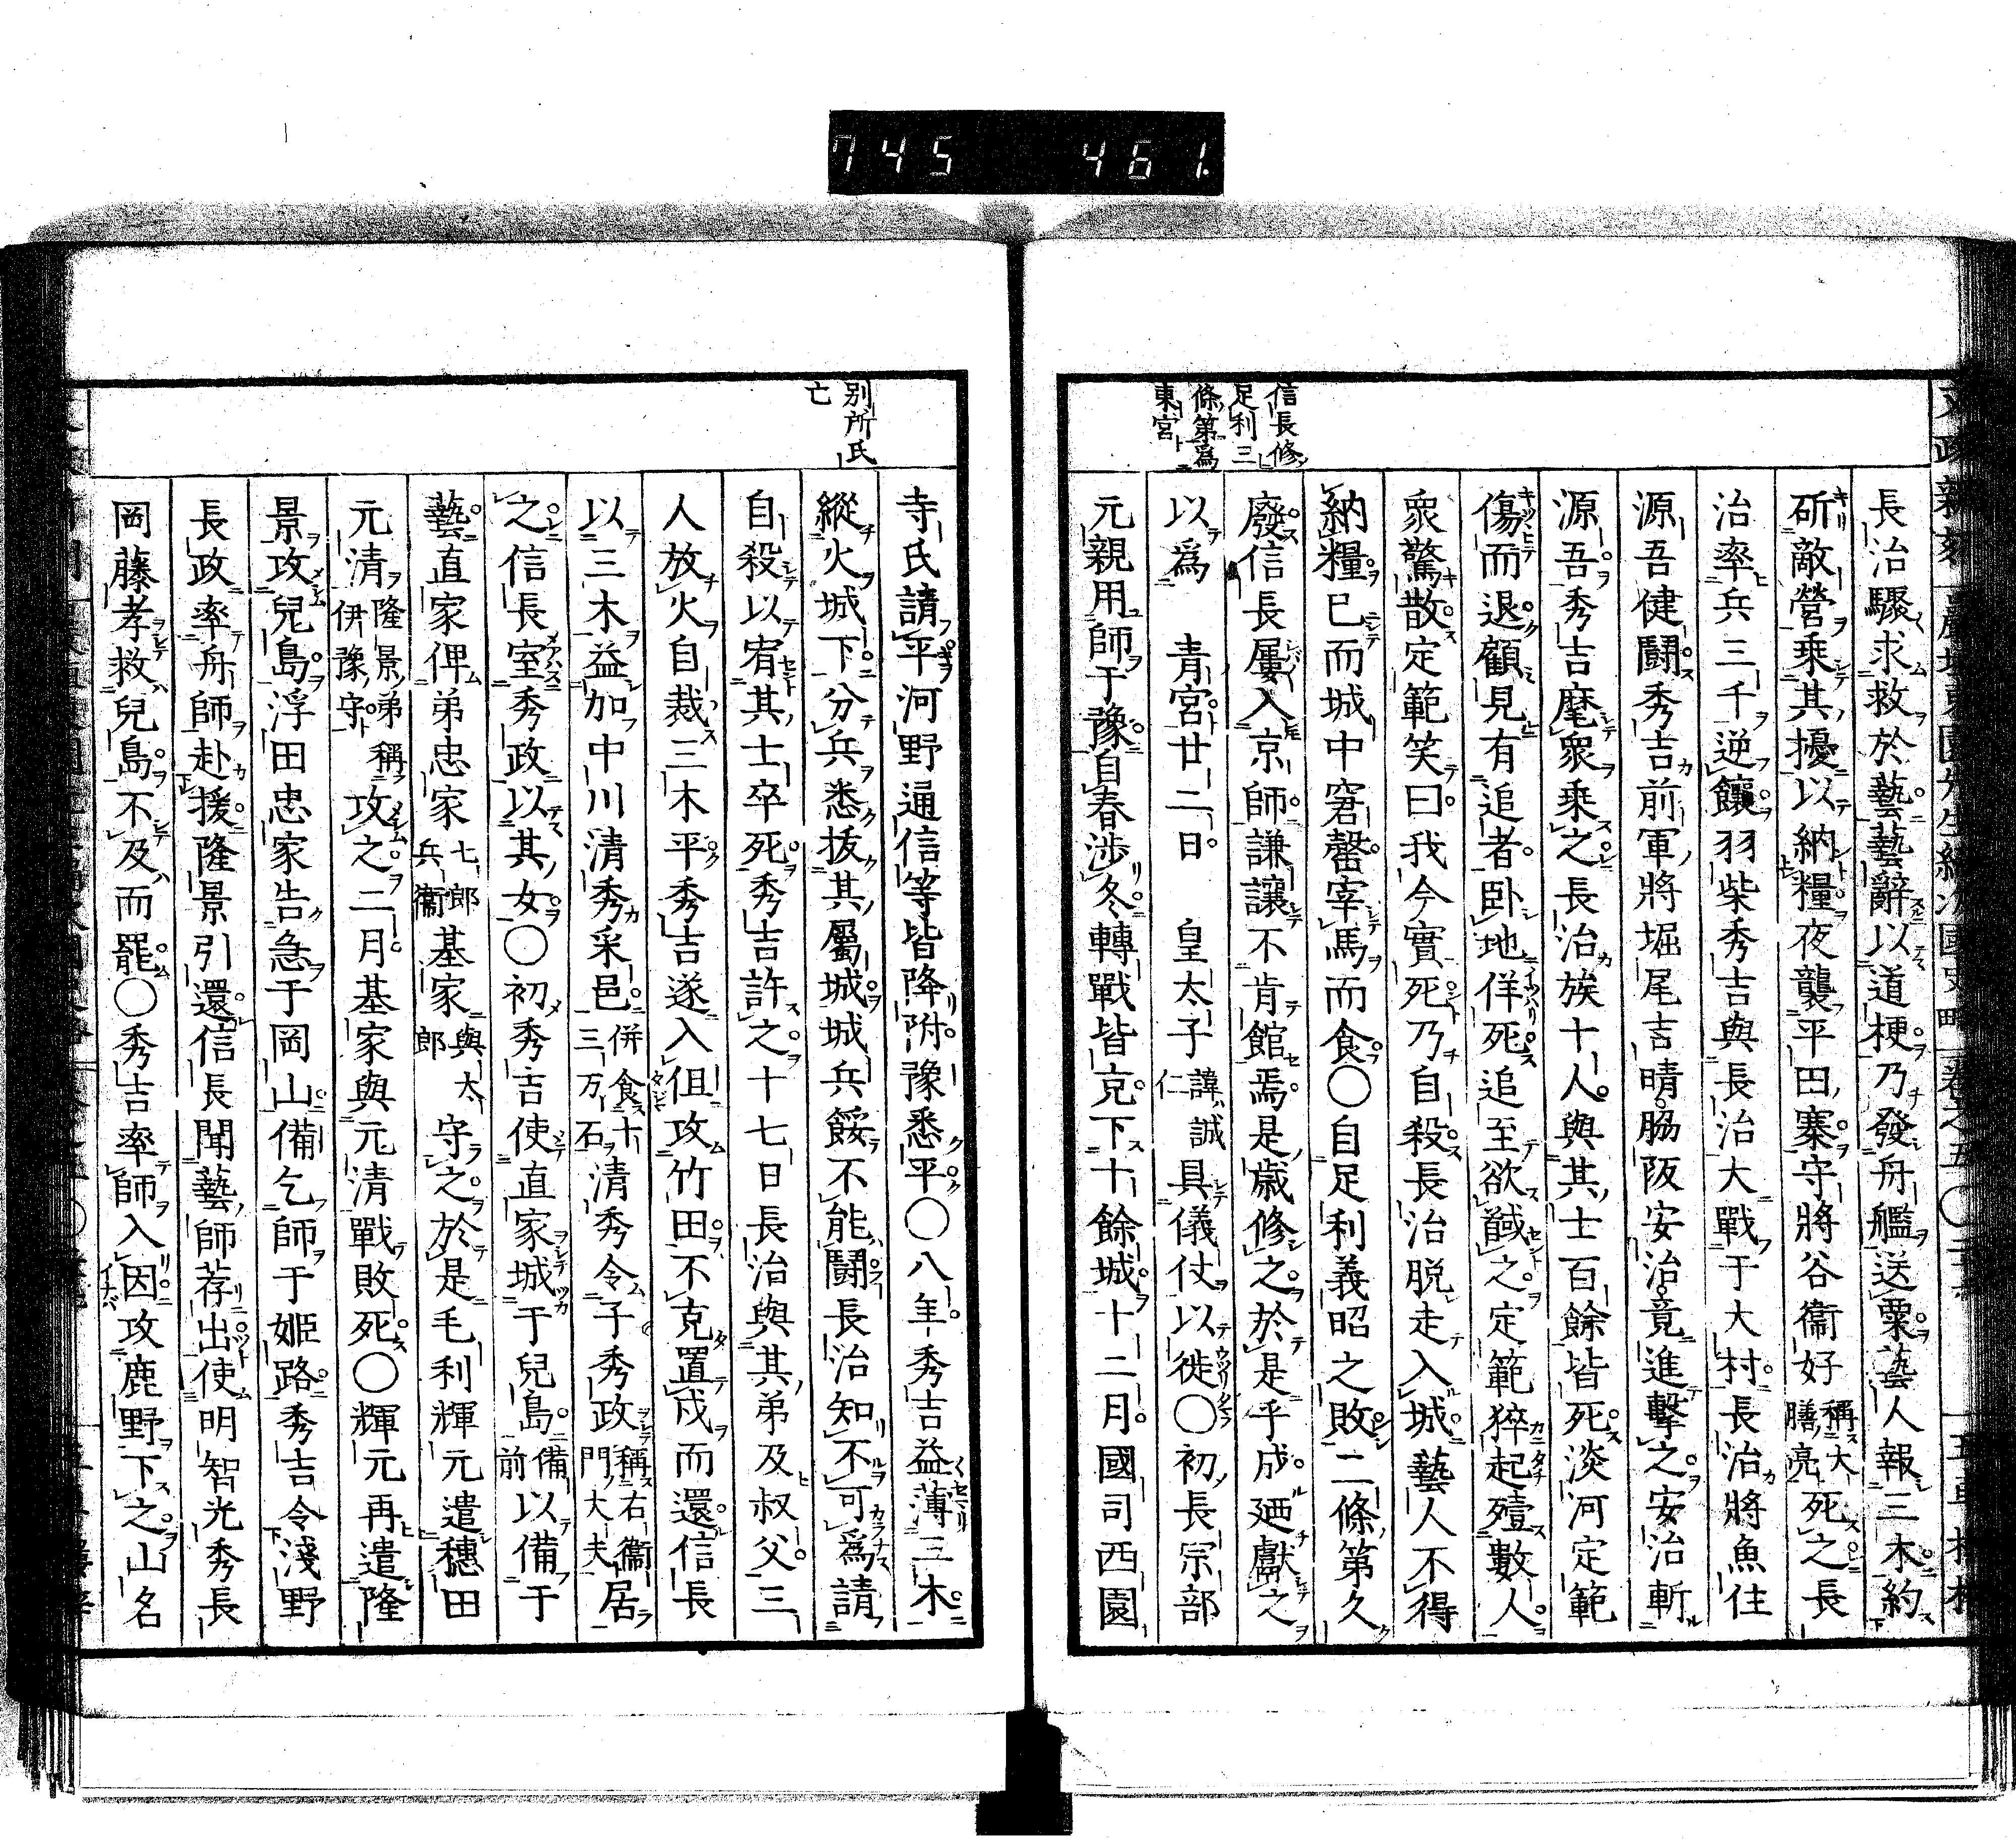 745 461.
信長修
足利三
條第爲
東宮
長治驟求救於藝藝辭以道梗乃發舟艦送粟藝人報三木約
斫敵營乘其擾以納糧夜襲平田寨守將谷衞好稱大膳亮死之長
治率兵三千逆饟羽柴秀吉與長治大戰于大村長治將魚住
源吾健鬪秀吉前軍將堀尾吉晴脇阪安治竟進擊之安治斬
源吾秀吉麾衆乘之長治族十人與其士百餘皆死淡河定範
傷而退顧見有追者卧地佯死追至欲馘之定範猝起殪數人
衆驚散定範笑曰我今實死乃自殺長治脫走入城藝人不得
納糧已而城中窘罄宰馬而食〇自足利義昭之敗二條第久
廢信長屢入京師謙讓不肯館焉是歲修之於是乎成廼獻之
以爲 青宮廿二日 皇太子諱誠仁具儀仗以徙〇初長宗部
元親用師于豫自春涉冬轉戰皆克下十餘城十二月國司西園
別所氏
亡
寺氏請平河野通信等皆降附豫悉平〇八年秀吉益薄三木
縱火城下分兵悉拔其屬城城兵餒不能鬪長治知不可爲請
自殺以宥其士卒死秀吉許之十七日長治與其弟及叔父三
人放火自裁三木平秀吉遂入但攻竹田不克置戍而還信長
以三木益加中川清秀采邑併食十三万石清秀令子秀政稱右衞門大夫居
之信長室秀政以其女〇初秀吉使直家城于兒島備前以備于
藝直家俾弟忠家七郎兵衞基家與太郎守之於是毛利輝元遣穗田
元清隆景弟稱伊豫守攻之二月基家與元清戰敗死〇輝元再遣隆
景攻兒島浮田忠家告急于岡山備乞師于姬路秀吉令淺野
長政率舟師赴援隆景引還信長聞藝師荐出使明智光秀長
岡藤孝救兒島不及而罷〇秀吉率師入因攻鹿野下之山名